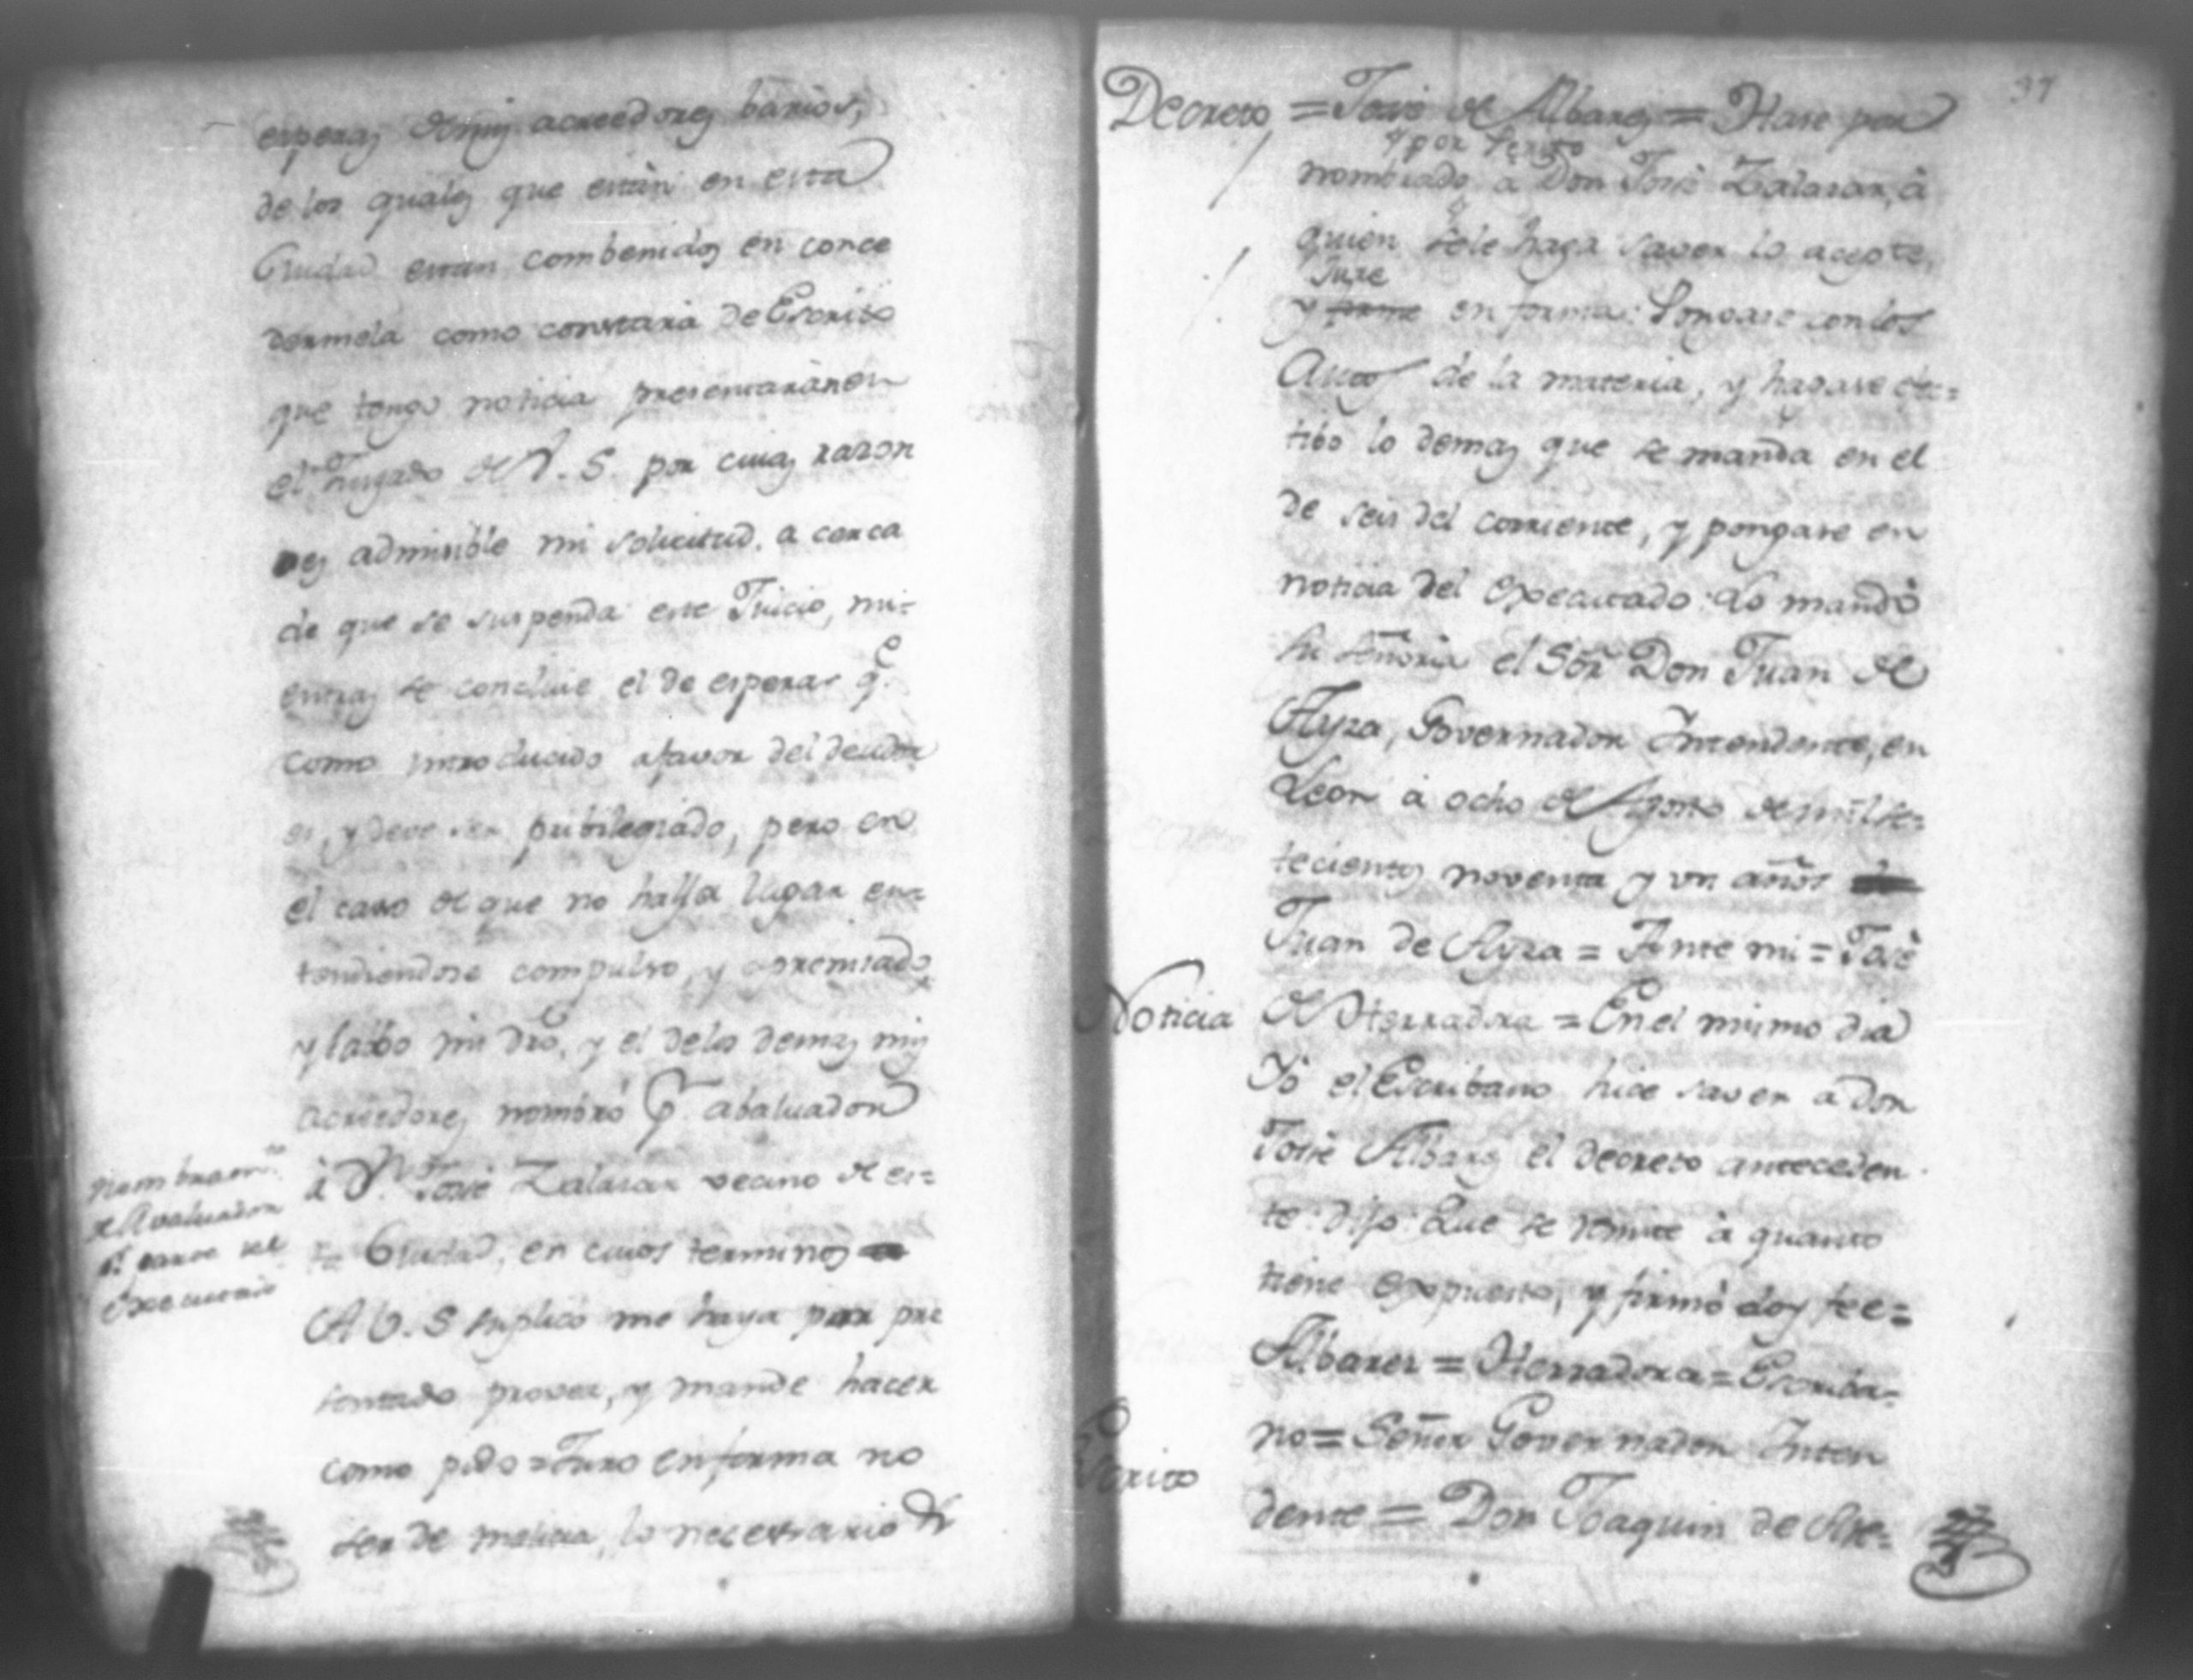 esperas de mis acreedores barios,
de los quales que están en esta
Ciudad estan combenidos en conce
dermela como constará de Escrito
que tengo noticia presentarán en
el Juzgado de V. S. por cuias razon
es admisible mi solicitud, a cerca
de que se suspenda este Juicio, mi=
entras se concluie el de esperas q.e
como introducido a favor del deudor
es, y deve ser pribilegiado, pero en
el caso de que no halla lugar en=
tendiendose compulso, y apremiado,
y salbo mi dro, y el de los demas mis
acreedores nombró p.r abaluador
Nombram.to
de Avaluador
p.r parte del
Executado
à D.n José Zalasar vecino de es=
ta Ciudad, en cuios terminos
A V. S suplico me haya por pre
sentado prover, y mande hacer
como pido = Juro en forma no
ser de malicia, lo necesario &
37
Decreto = José de Albares = Hase por
por Perito
nombrado a Don José Zalasar, à
quien se le haga saver lo acepte,
Jure
y firme en forma: Pongase con los
Autos de la materia, y hagase efec=
tibo lo demas que se manda en el
de seis del corriente, y pongase en
noticia del Executado: Lo mandó
su señoria el Sõr Don Juan de
Ayza, Governador Intendente, en
Leon à ocho de Agosto de mil se=
tecientos noventa y un años
Juan de Ayza = Ante mi = José
Noticia de Herradora = En el mismo dia
Yó el Escribano hice saver a don
José Albares el decreto anteceden
te: dijo: Que se remite à quanto
tiene expuesto, y firmó doy fee=
Albares = Herradora = Escriba=
Escrito no = Señor Governador Inten
dente = Don Joaquin de Are=